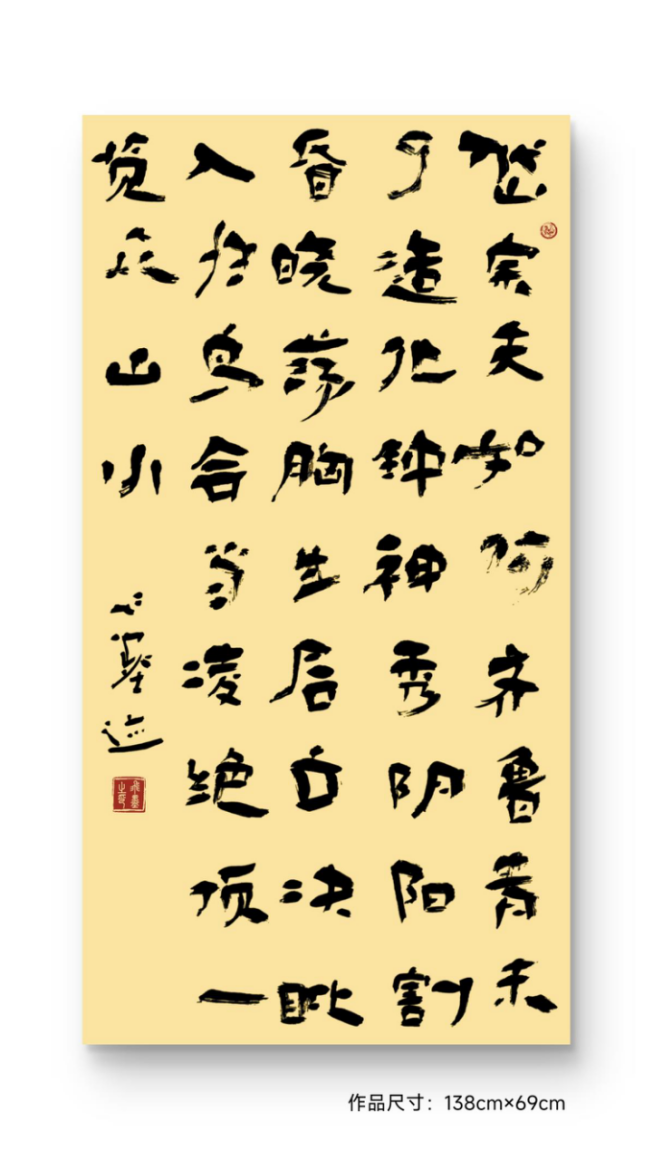 岱宗夫如何齐鲁青未
了造化钟神秀阴阳割
昏晓荡胸生层云决眦
入归鸟会当凌绝顶一
览众山小
作品尺寸：138cm×69cm